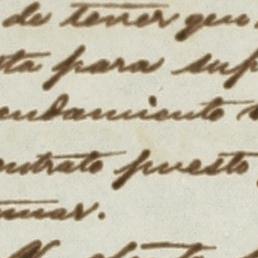 de tener que
ta para sup
endamiento
ontrato puesto
mar.